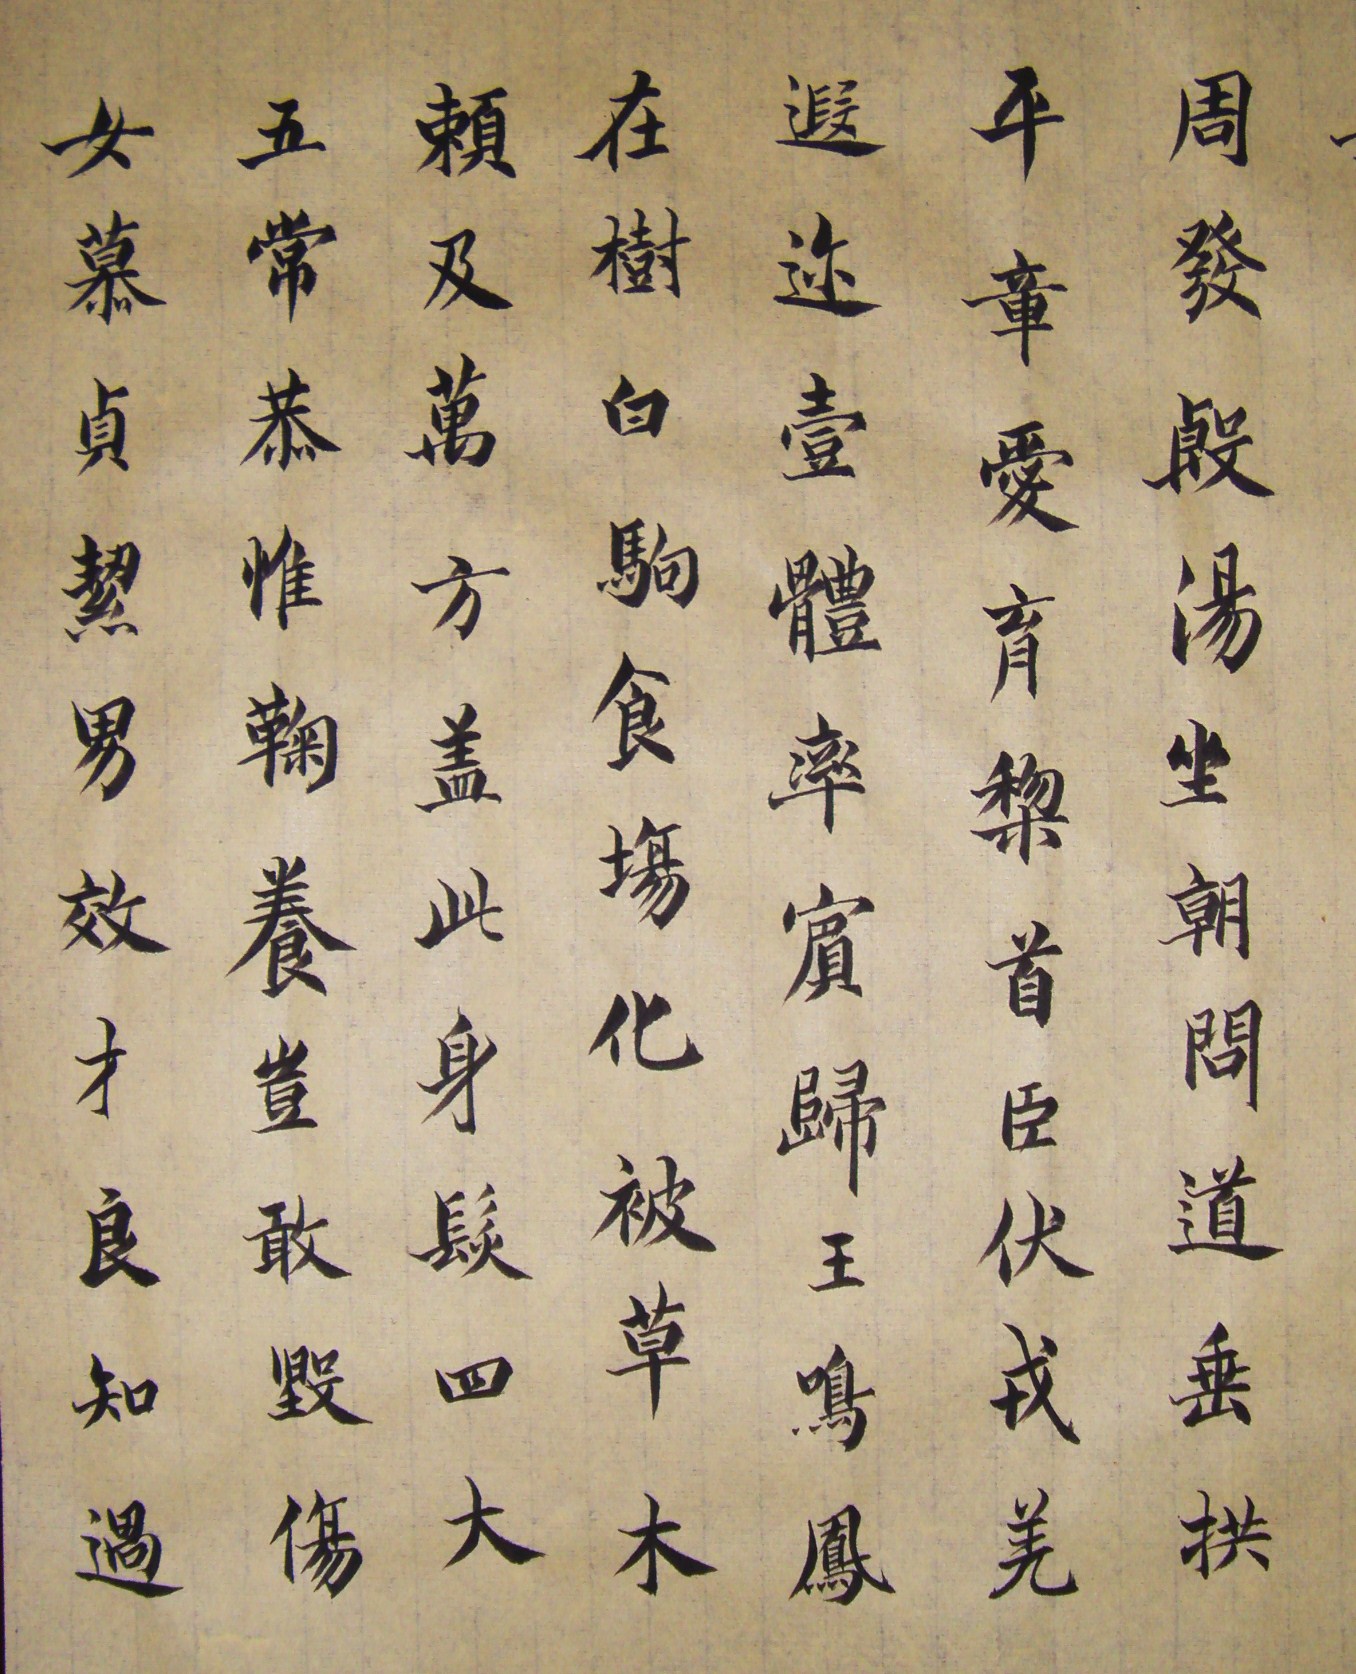 周發殷湯坐朝問道垂拱
平章愛育黎首臣伏戎羌
遐迩壹體率賓歸王鳴鳳
在樹白駒食塲化被草木
頼及萬方盖此身髮四大
五常恭惟鞠養豈敢毀傷
女慕貞絜男效才良知過